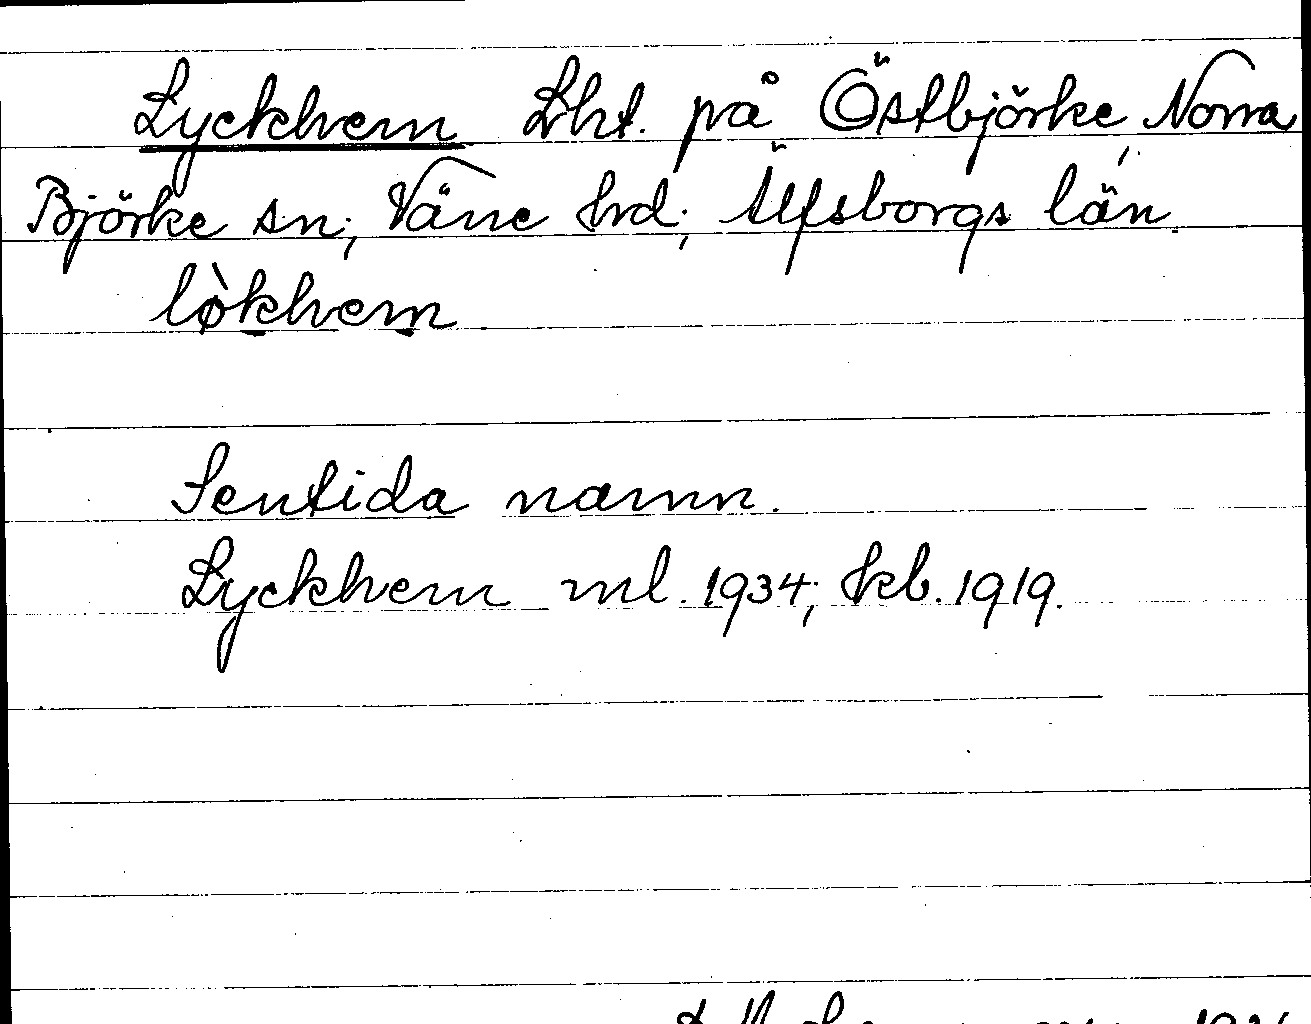 Lyckhem Lht. på Östbjörke, Norra
Björke sn; Väne hd; Älfsborgs län.
lø̀khem
Sentida namn.
Lyckhem ml. 1934; kb. 1919.